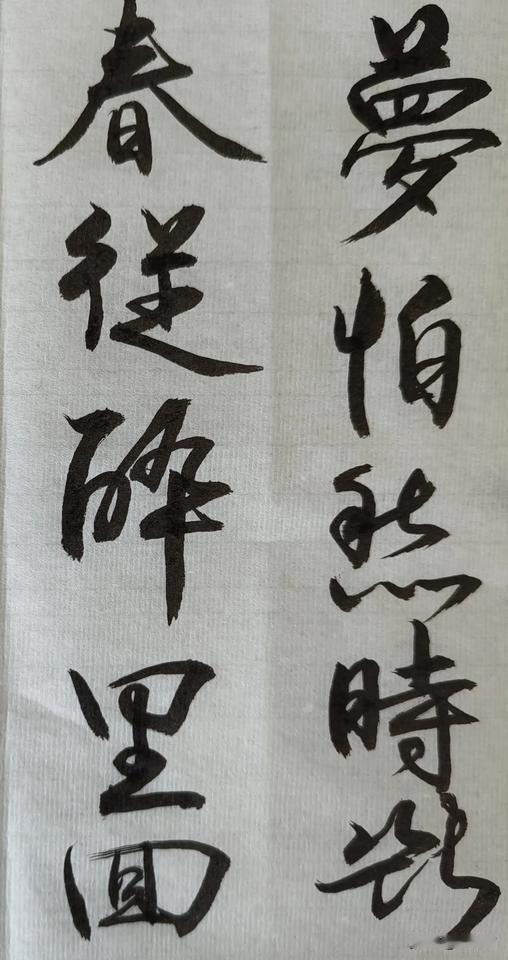 夢怕愁時斷
春從醉里回